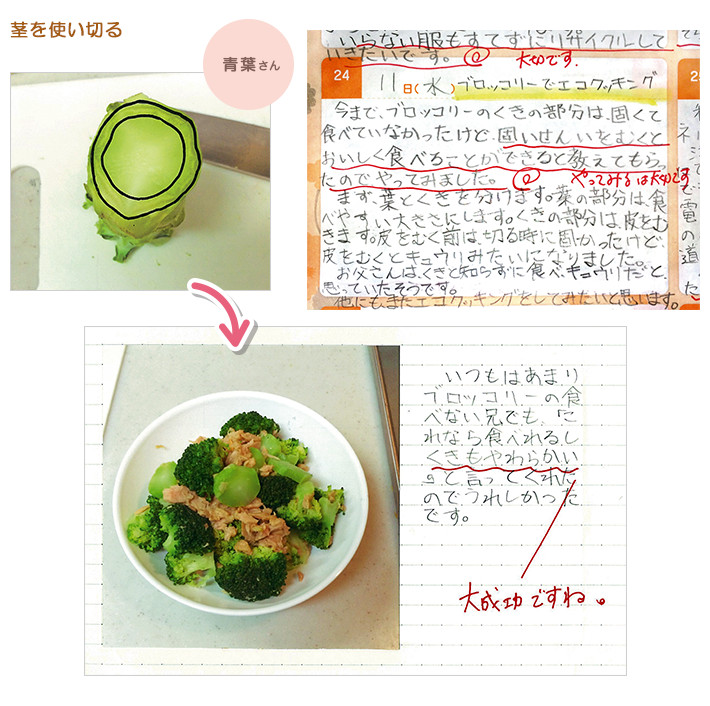 茎を使い切る
青葉さん
いらない服もすてずにリサイクルして
いきたいです。
大切です.
24
25
11日(水)ブロッコリーでエコクッキング
今まで、ブロッコリーのくきの部分は、固くて
食べていなかったけど、固いせんいをむくと
おいしく食べることができると教えてもらっ
たのでやってみました。
やってみるは大切です
まず、葉とくきを分けます。葉の部分は、食
べやすい大きさにします。くきの部分は、皮をむ
きます。皮をむく前は、切る時に固かったけど、
皮をむくとキュウリみたいになりました。
お父さんは、くきと知らずに食べ、キュウリだと、
思っていたそうです。
他にもまたエコクッキングをしてみたいと思います。
で
電
の
道
いつもはあまり
ブロッコリーの食
べない兄でも、「こ
れなら食べれるし
くきもやわらかい
」と言ってくれた
のでうれしかった
です。
大成功ですね。